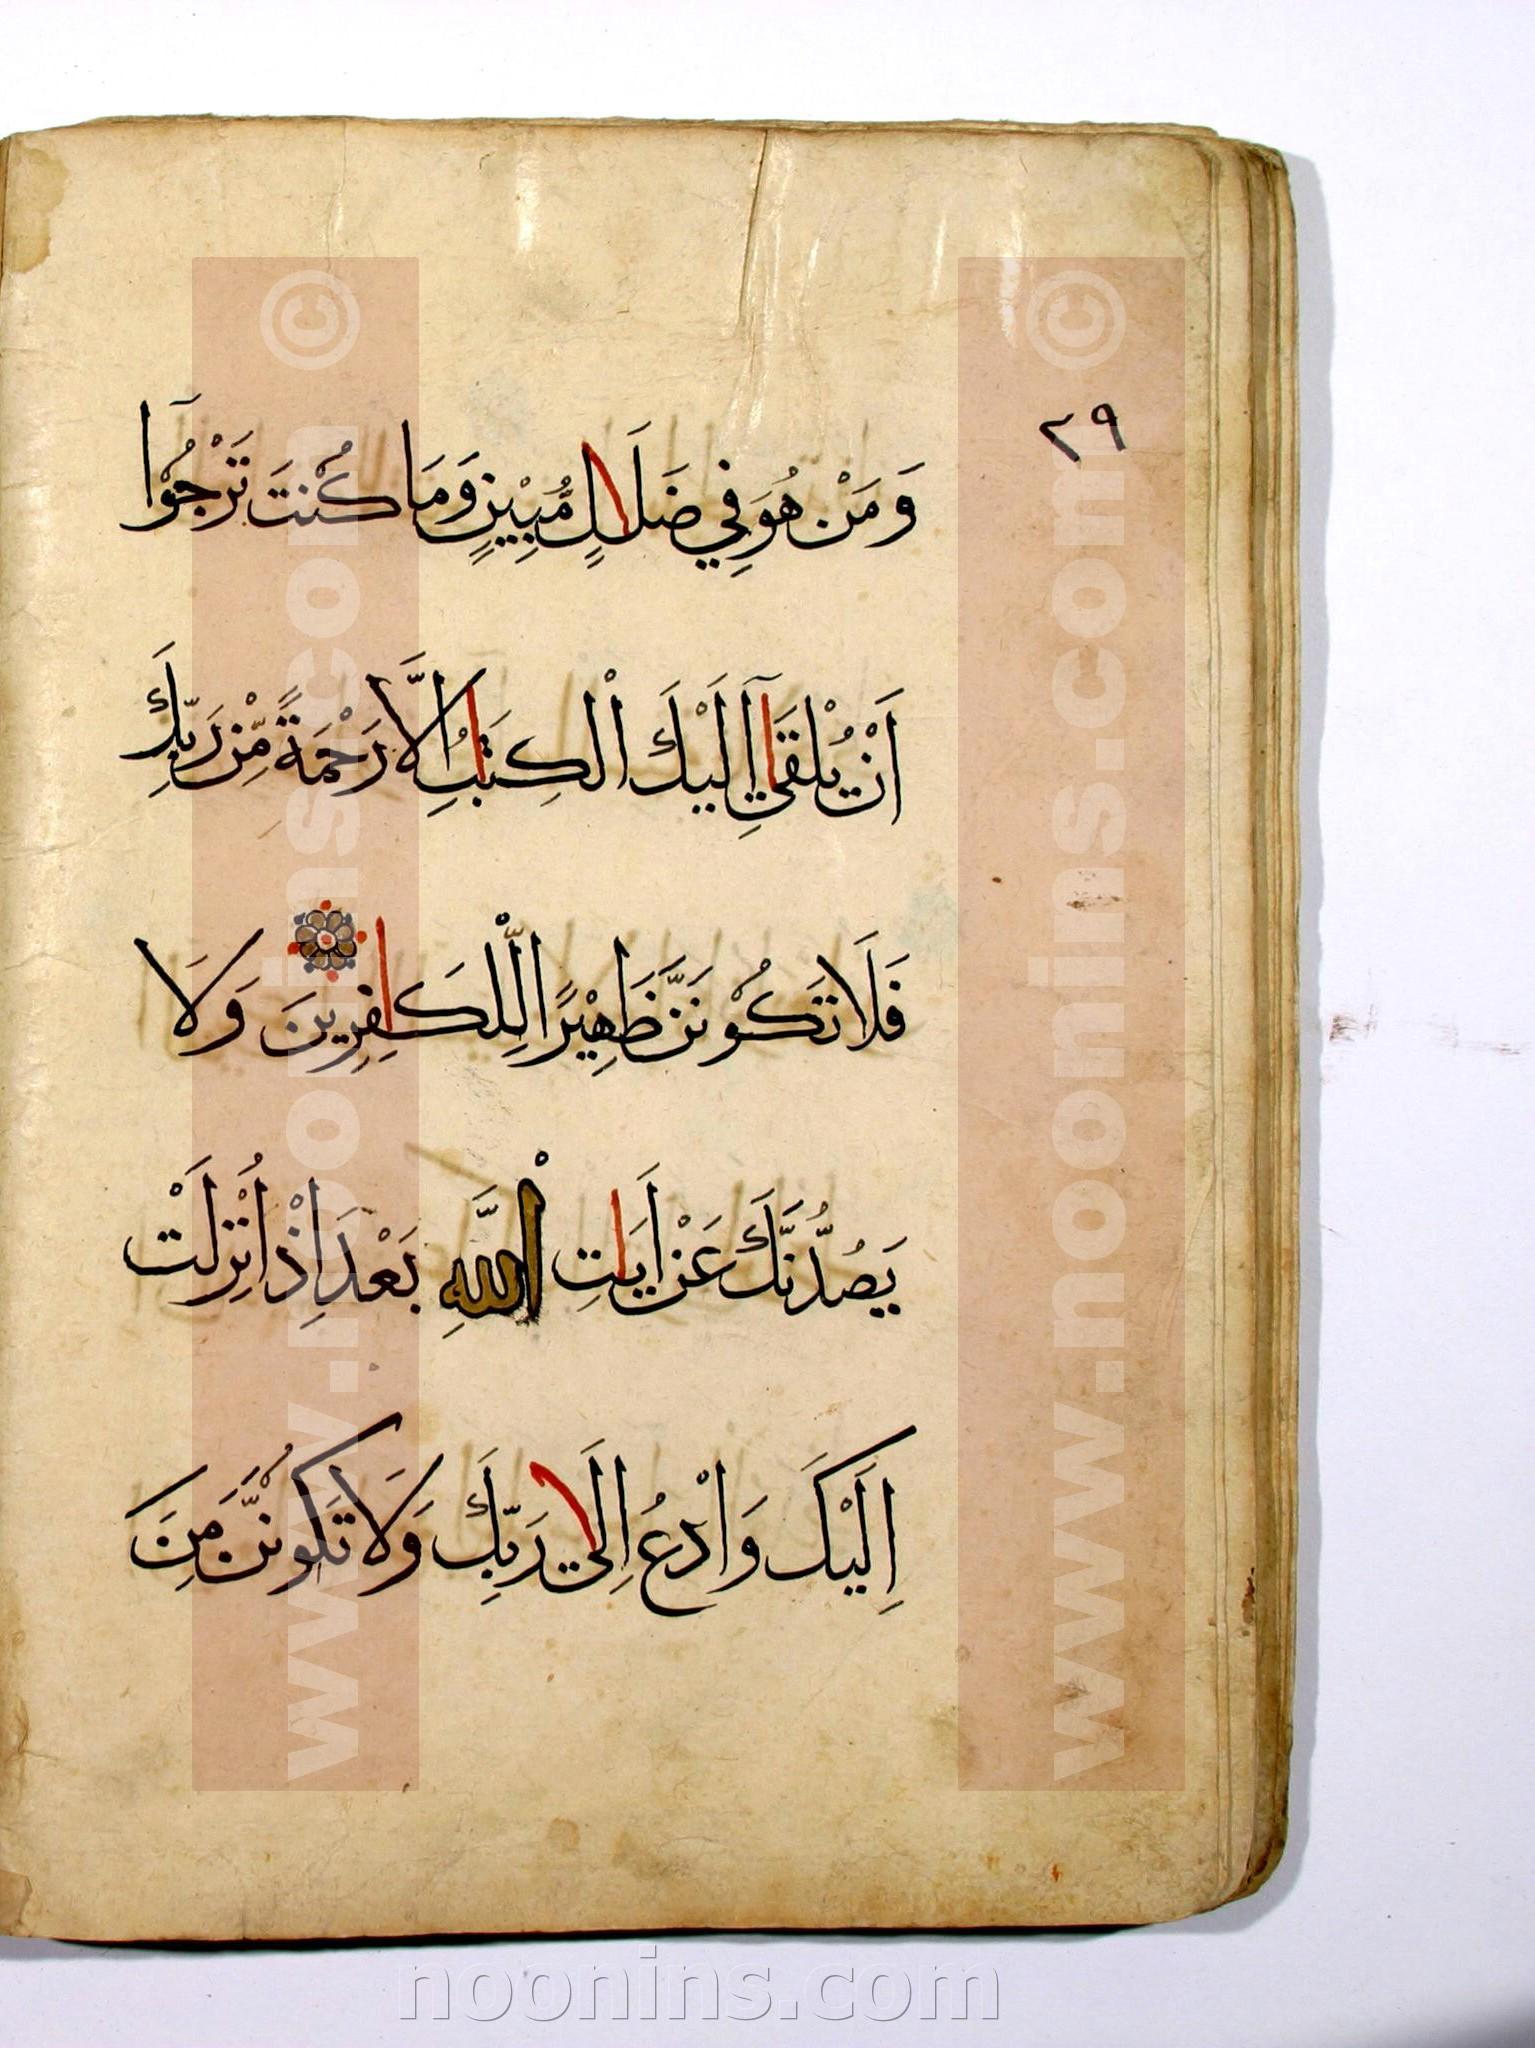 ٢٩
وَمَنْ هُوَ فِي ضَلَالٍ مُّبِيْنٍ وَمَا كُنْتَ تَرْجُوْا
اَنْ يُلْقَىٰ اِلَيْكَ الْكِتَابُ اِلَّا رَحْمَةً مِّنْ رَبِّكَ
فَلَا تَكُوْنَنَّ ظَهِيْرًا لِّلْكَافِرِينَ وَلَا
يَصُدُّنَّكَ عَنْ اَيَاتِ اللَّهِ بَعْدَ اِذْ اُنْزِلَتْ
اِلَيْكَ وَادْعُ اِلَىٰ رَبِّكَ وَلَا تَكُونَنَّ مِنَ
www.noonins.com ©
www.noonins.com ©
noonins.com